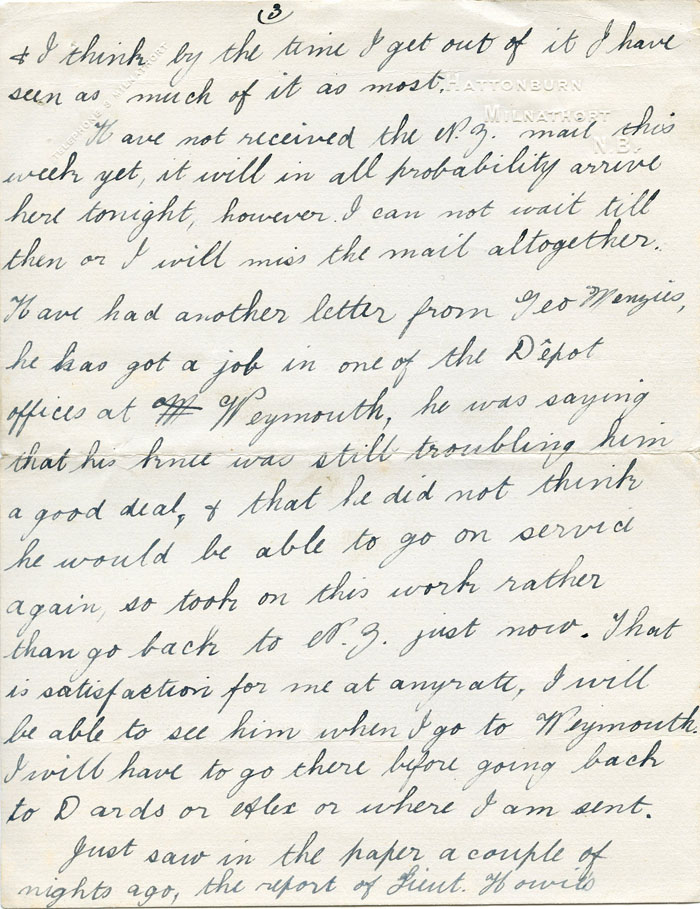 3
& I think by the time I get out of it I have
seen as much of it as most.
HATTONBURN
MILNATHORT
N.B.
Have not received the N.Z. mail this
week yet, it will in all probability arrive
here tonight, however I can not wait till
then or I will miss the mail altogether.
Have had another letter from Geo Menzies,
he has got a job in one of the Dêpot
offices at Weymouth, he was saying
that his knee was still troubling him
a good deal, & that he did not think
he would be able to go on service
again, so took on this work rather
than go back to N.Z. just now. That
is satisfaction for me at anyrate, I will
be able to see him when I go to Weymouth.
I will have to go there before going back
to Dards or Alex or where I am sent.
Just saw in the paper a couple of
nights ago, the report of Lieut. Howie's